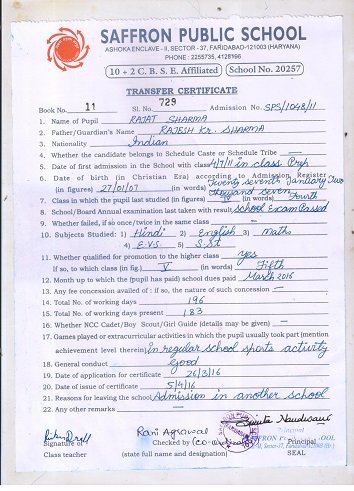 SAFFRON PUBLIC SCHOOL
ASHOKA ENCLAVE - II, SECTOR - 37, FARIDABAD-121003 (HARYANA)
PHONE : 2255735, 4128166
10 + 2 C. B. S. E. Affiliated School No. 20257
TRANSFER CERTIFICATE
Book No. 11 Sl. No. 729 Admission No. SPS/1048/11
1. Name of Pupil RAJAT SHARMA
2. Father/Guardian's Name RAJESH Kr. SHARMA
3. Nationality Indian
4. Whether the candidate belongs to Schedule Caste or Schedule Tribe —
5. Date of first admission in the School with class 4/7/11 in class Prep
6. Date of birth (in Christian Era) according to Admission Register
(in figures) 27/01/07 (in words) Twenty seventh January Two thousand seven
7. Class in which the pupil last studied (in figures) IV (in words) Fourth
8. School/Board Annual examination last taken with result School Exam Passed
9. Whether failed, if so once/twice in the same class
10. Subjects Studied: 1) Hindi 2) English 3) Maths
4) E.V.S. 5) S.St
11. Whether qualified for promotion to the higher class yes
If so, to which class (in fig.) V (in words) Fifth
12. Month up to which the (pupil has paid) school dues paid March 2016
13. Any fee concession availed of : if so, the nature of such concession —
14. Total No. of working days 196
15. Total No. of working days present 183
16. Whether NCC Cadet/Boy Scout/Girl Guide (details may be given) —
17. Games played or extracurricular activities in which the pupil usually took part (mention
achievement level therein) In regular school sports activity
18. General conduct Good
19. Date of application for certificate 26/3/16
20. Date of issue of certificate 5/4/16
21. Reasons for leaving the school Admission in another school
22. Any other remarks —
Rani Agrawal
Signature of Checked by Principal
Class teacher (state full name and designation) SEAL